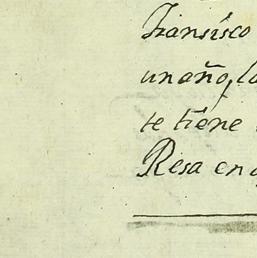 Fransisco
un año, la
se tiene
Resa en